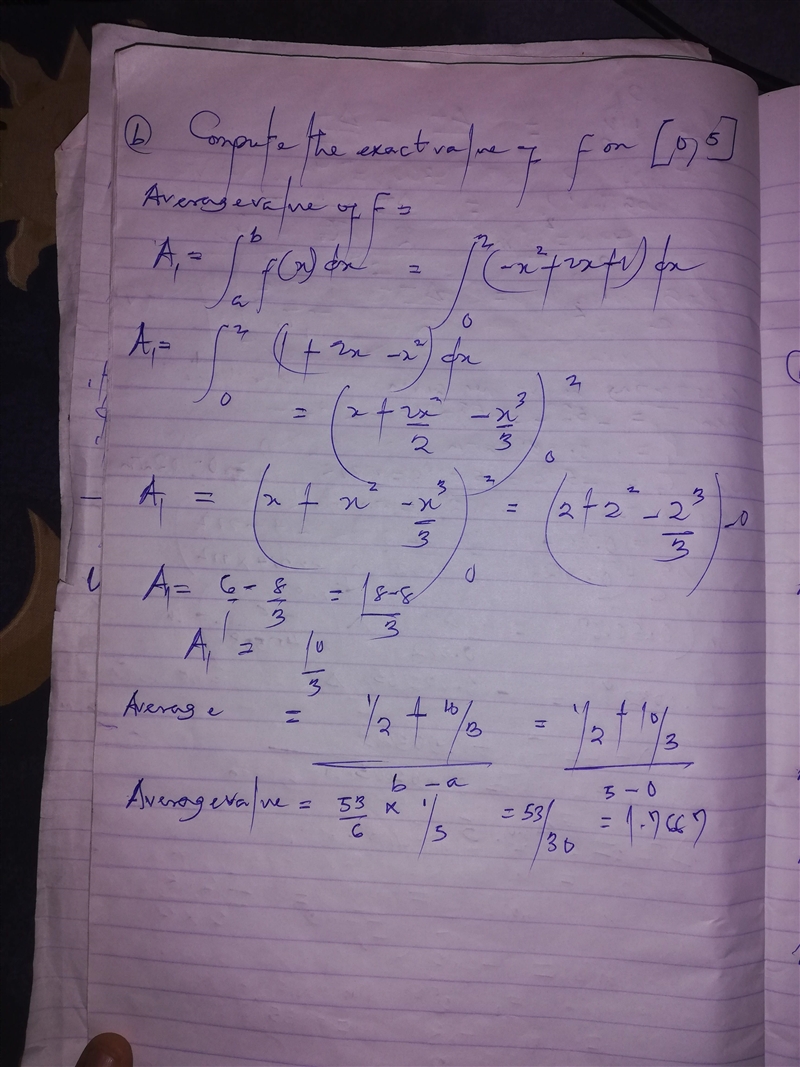 (b) Compute the exact value of f on [0, 5]
Average value of f =
A₁ = ∫ₐᵇ f(x) dx = ∫₀² (-x² + 2x + 1) dx
A₁ = ∫₀² (1 + 2x - x²) dx
= (x + 2x²/2 - x³/3)₀²
A₁ = (x + x² - x³/3)₀² = (2 + 2² - 2³/3) - 0
A₁ = 6/1 - 8/3 = 18-8/3
A₁ = 10/3
Average = 1/2 + 10/3 / b - a = 1/2 + 10/3 / 5 - 0
Average value = 53/6 × 1/5 = 53/30 = 1.7667